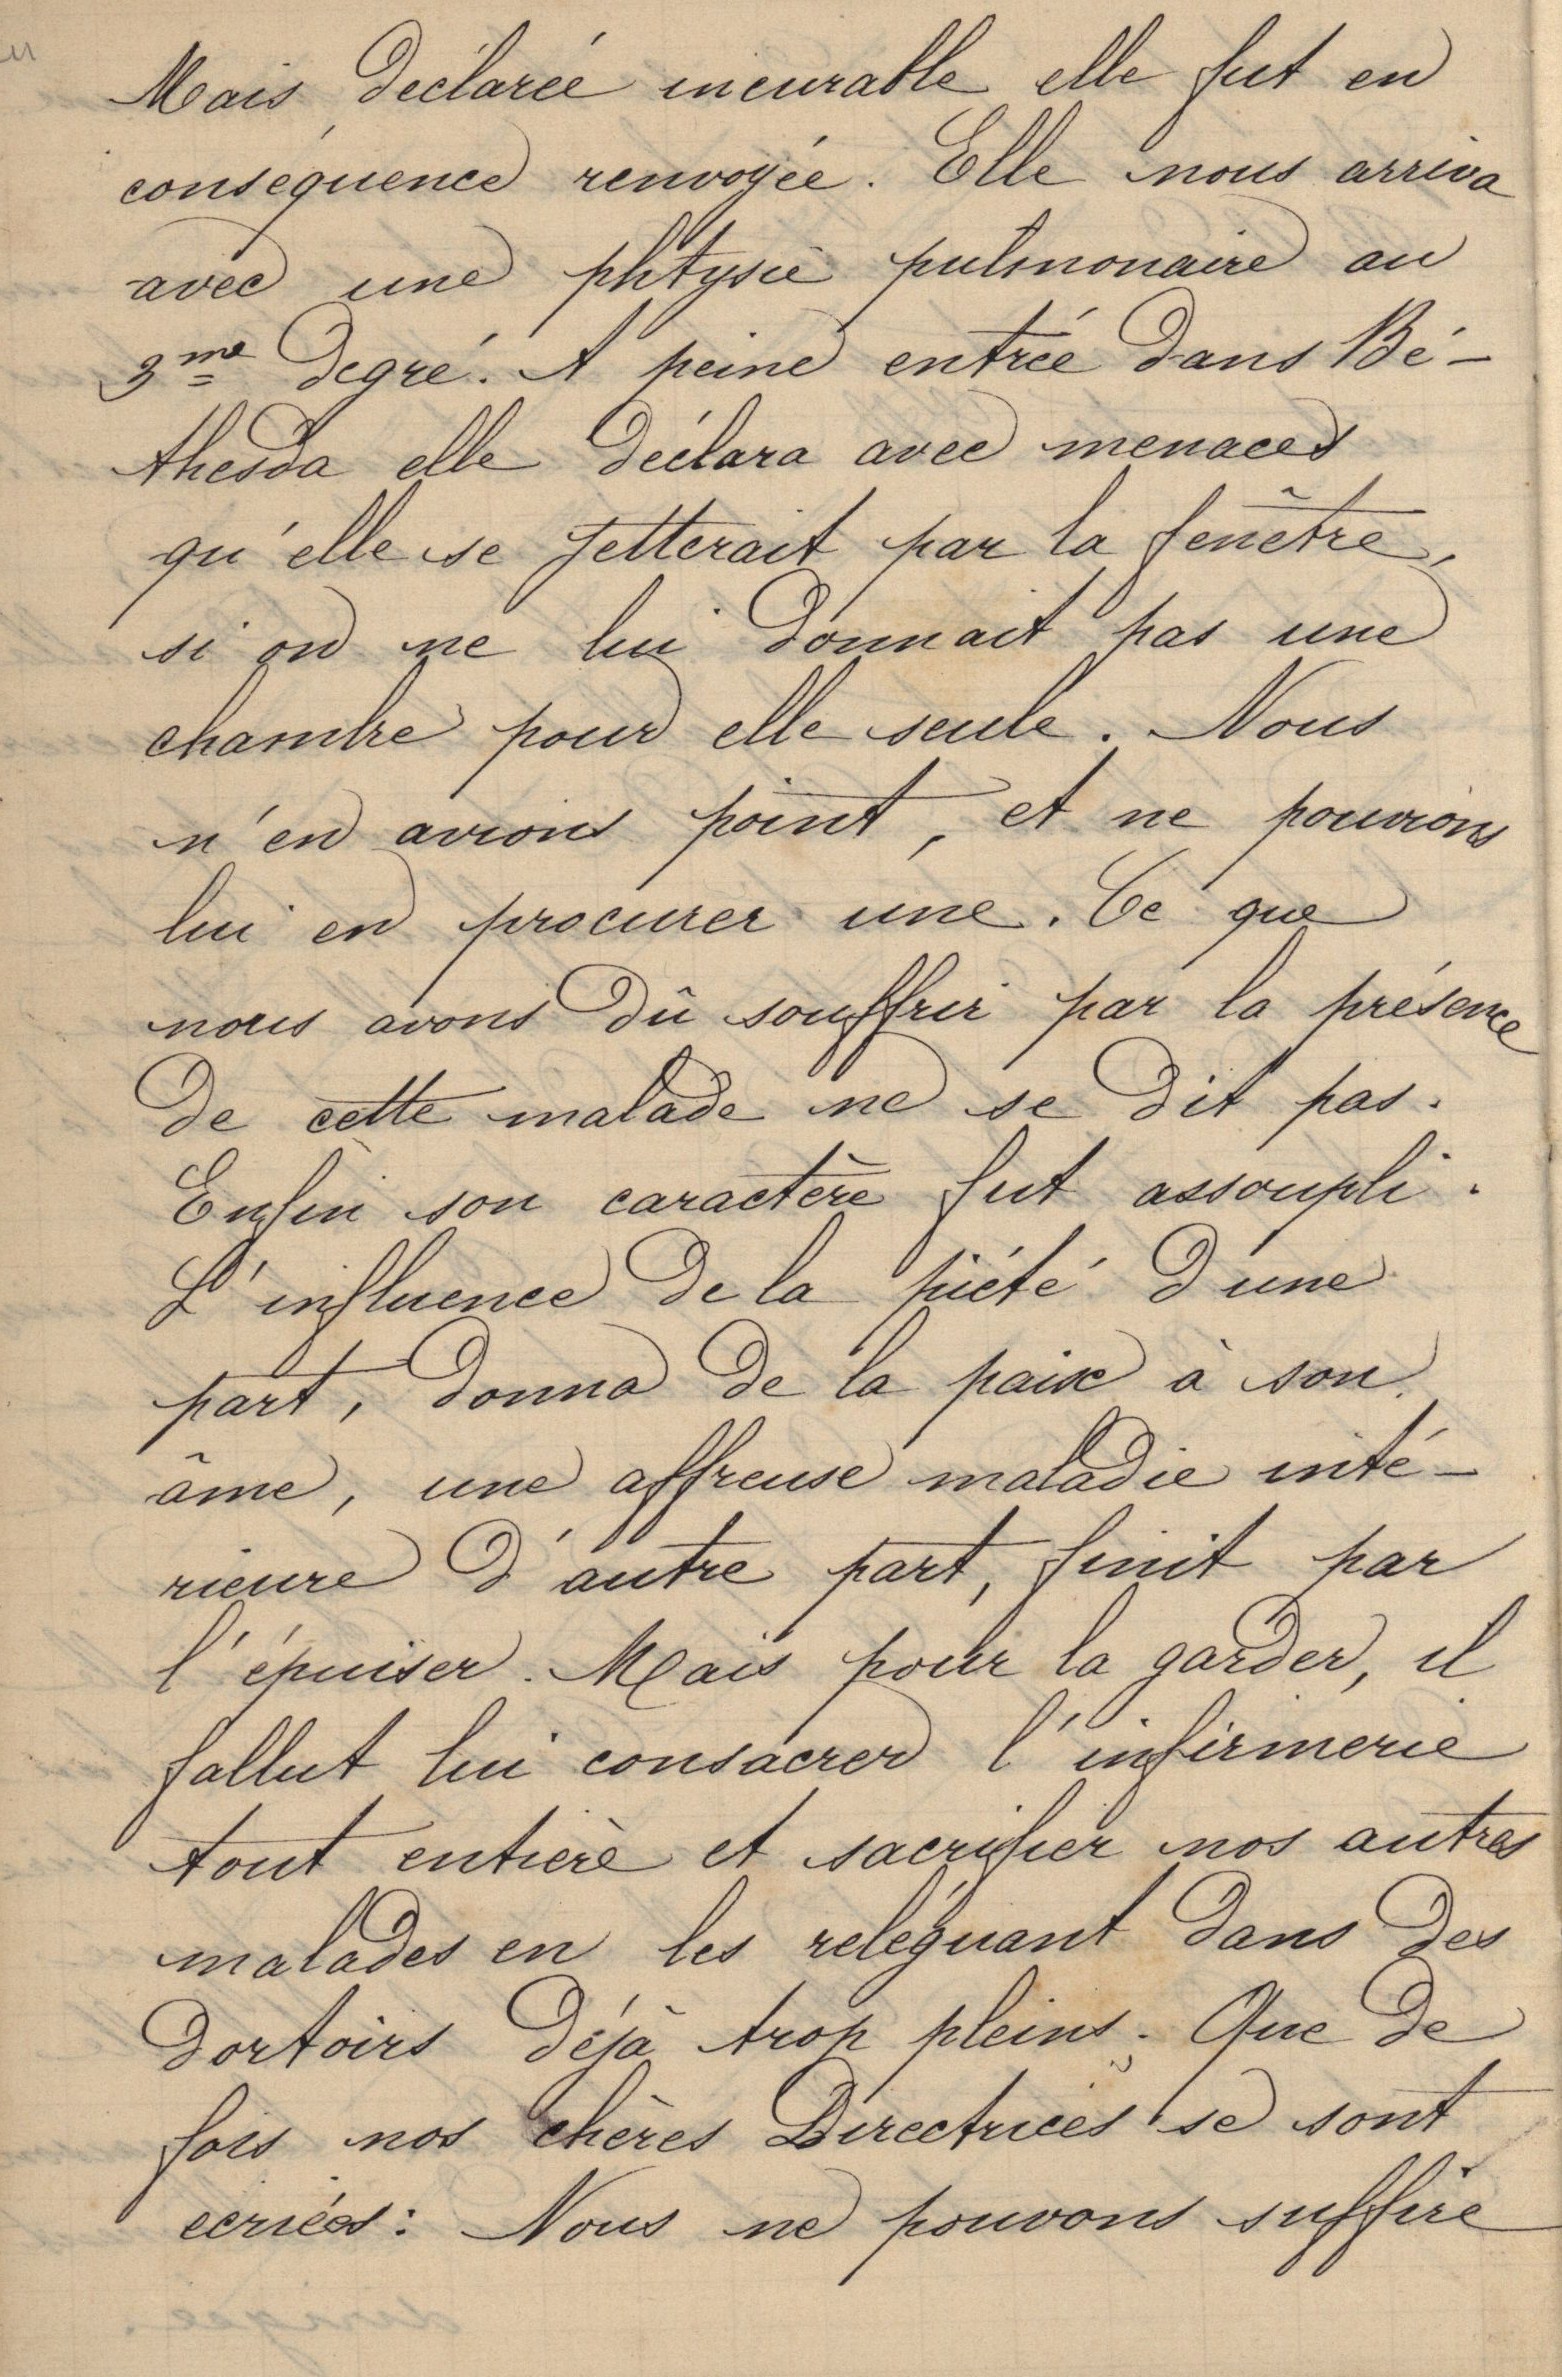 Mais déclarée incurable elle fut en
conséquence renvoyée. Elle nous arriva
avec une phtysie pulmonaire au
3me degré. A peine entrée dans Bé-
thesda elle déclara avec menaces
qu'elle se jetterait par la fenêtre,
si on ne lui donnait pas une
chambre pour elle seule. Nous
n'en avions point, et ne pouvions
lui en procurer une. Ce que
nous avons dû souffrir par la présence
de cette malade ne se dit pas.
Enfin son caractère fut assoupli.
L'influence de la piété d'une
part, donna de la paix à son
âme, une affreuse maladie inté-
rieure d'autre part, finit par
l'épuiser. Mais pour la garder, il
fallut lui consacrer l'infirmerie
tout entière et sacrifier nos autres
malades en les reléguant dans des
dortoirs déjà trop pleins. Que de
fois nos chères Directrices se sont
ecriées: Nous ne pouvons suffire